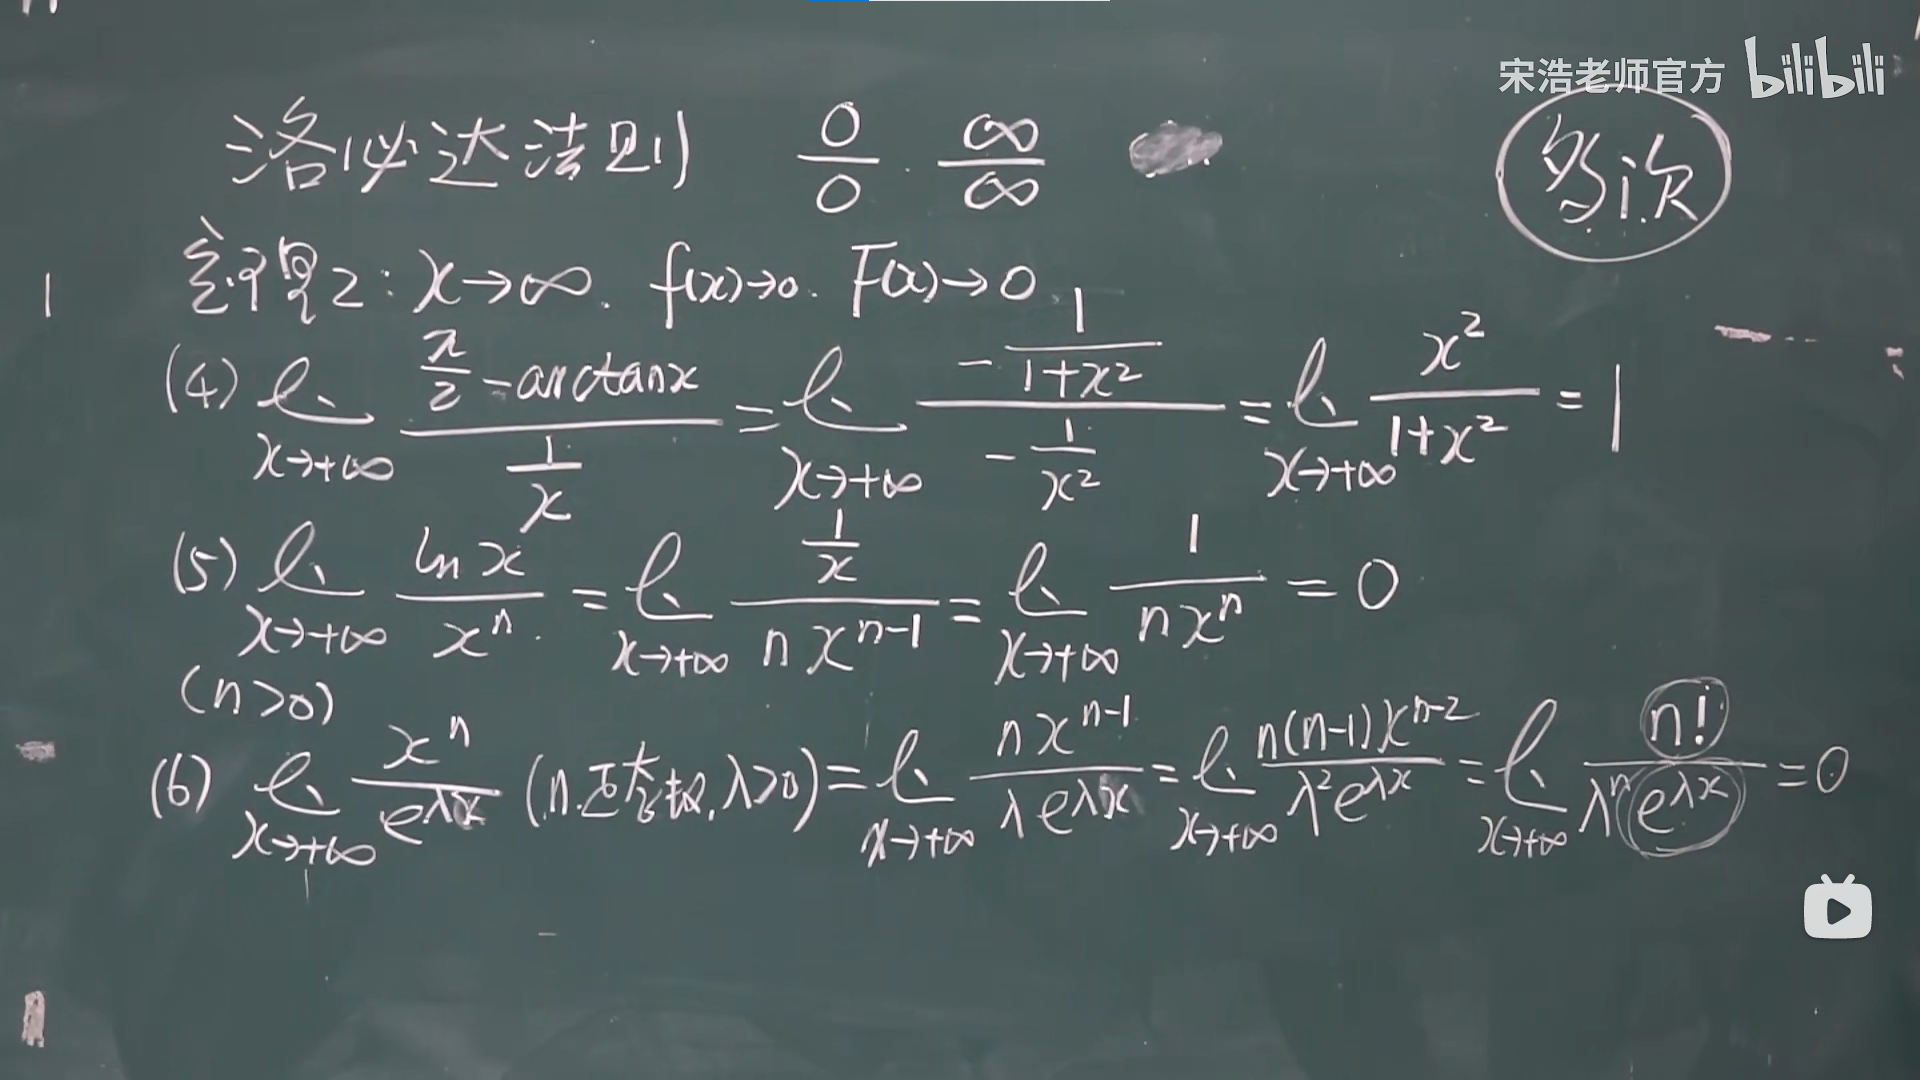 宋浩老师官方 bilibili
洛必达法则 0/0 . ∞/∞ 多次
定理2: x→∞. f(x)→0. F(x)→0
(4) lim x→+∞ (π/2 - arctanx)/(1/x) = lim x→+∞ (-1/(1+x²))/(-1/x²) = lim x→+∞ x²/(1+x²) = 1
(5) lim x→+∞ ln x/xⁿ = lim x→+∞ (1/x)/(n xⁿ⁻¹) = lim x→+∞ 1/(n xⁿ) = 0
(n>0)
(6) lim x→+∞ xⁿ/e^(λx) (n.正整数,λ>0) = lim x→+∞ n xⁿ⁻¹/(λ e^(λx)) = lim x→+∞ n(n-1)xⁿ⁻²/(λ² e^(λx)) = lim x→+∞ n!/(λⁿ e^(λx)) = 0